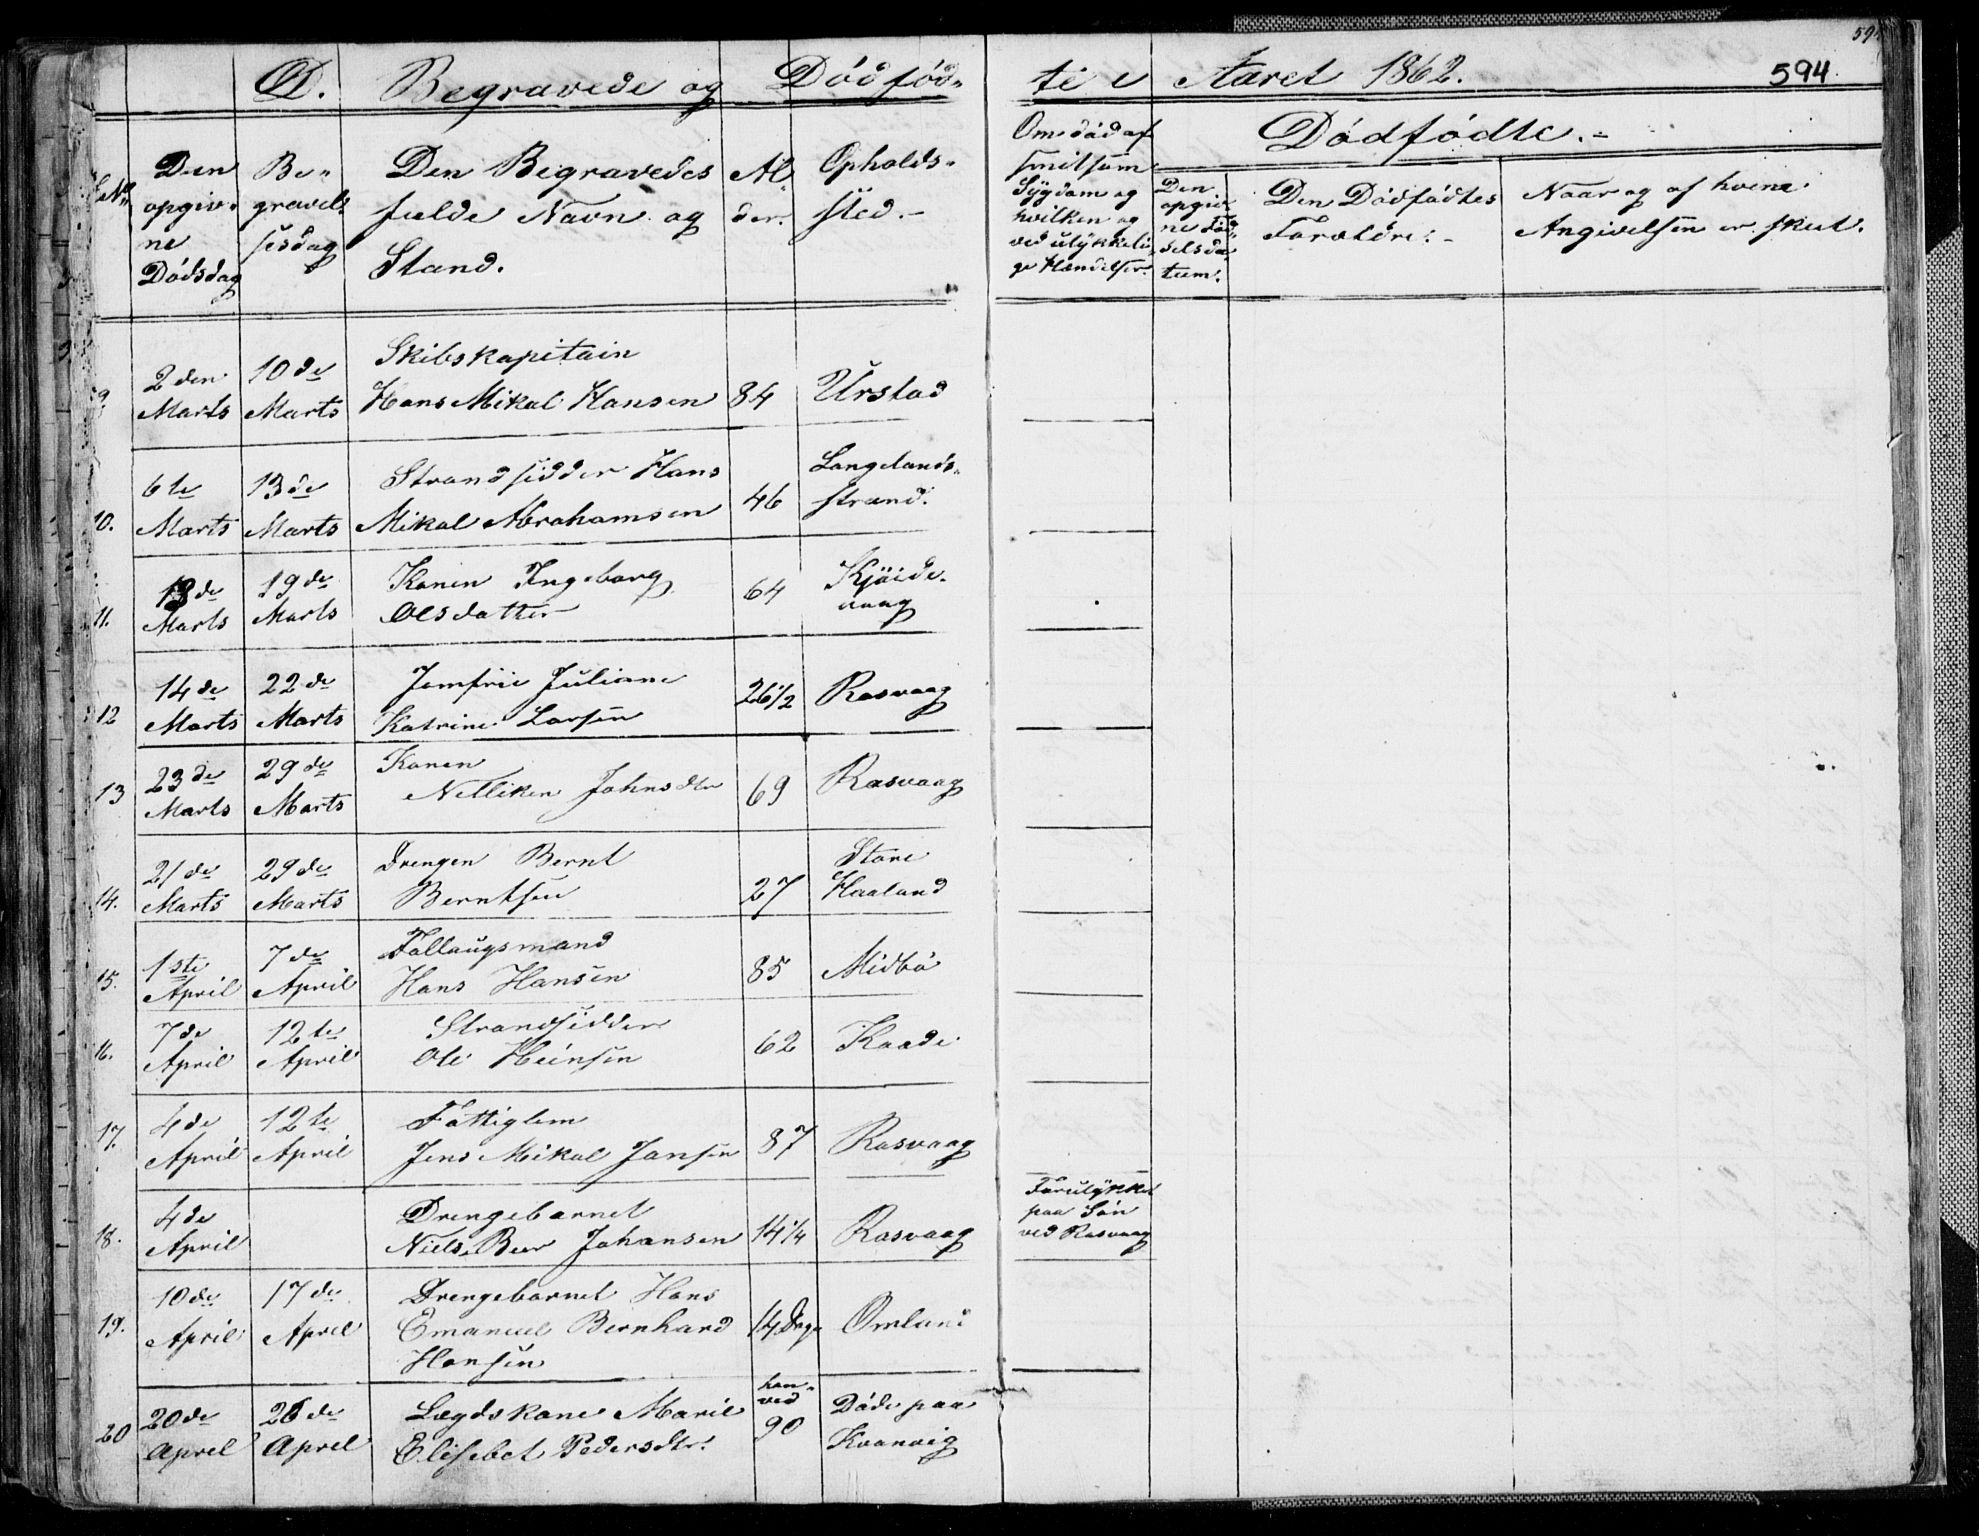 594
594.
D. Begravede og Dödföd-
te i Aaret 1862.
No
Den opgiv-
ne
Dödsdag
Be-
gravel-
sesdag
Den Begravedes
fulde Navn og
Stand.
Al-
der.
Opholds-
sted.-
Om död af
smitsom
Sÿgdom og
hvilken og
ved ulÿkkeli-
ge Hændelser.
Dödfödte.-
Den
opgiv-
ne Föd-
selsda-
tum.
Den Dödfödtes
Forældre.-
Naar og af hvem
Angivelsen er skeet.
9.
2den
Marts
10de
Marts
Skibskapitain
Hans Mikal Hansen
84
Urstad
10.
6te
Marts
13de
Marts
Strandsidder Hans
Mikal Abrahamsen
46
Langelands-
strand.
11.
13de
Marts
19de
Marts
Konen Ingeborg
Olsdatter
64
Kjöide-
vaag
12
14de
Marts
22de
Marts
Jomfrue Juliane
Katrine Larsen
26 1/2
Rasvaag
13
23de
Marts
29de
Marts
Konen
Nelliken Johnsdtr
69
Rasvaag
14.
21de
Marts
29de
Marts
Drengen Bernt
Berntsen
27
Store
Haaland
15.
1ste
April
7de
April
Follaugsmand
Hans Hansen
85
Midbö
16.
7de
April
12te
April
Strandsidder
Ole Heinsen
62
Kaade
17.
4de
April
12te
April
Fattiglem
Jens Mikal Jansen
87
Rasvaag
18.
4de
April
Drengebarnet
Niels Beer Johansen
14 1/4
Rasvaag
Forulÿkket
paa Söen
ved Rasvaag
19.
10de
April
17de
April
Drengebarnet Hans
Emanuel Bernhard
Hansen
14 Dage
Omland
20
20de
April
26de
April
Lægdskone Marie
Elisebet Pedersdtr.
hen-
ved
90
Döde paa
Kvanvig